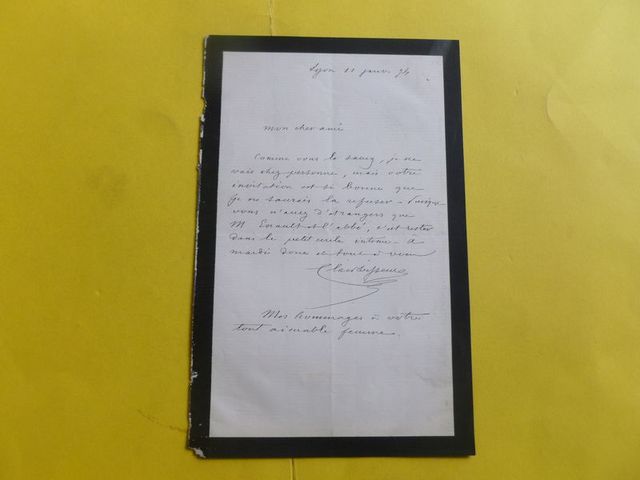 Lyon 11 janv. 94
Mon cher ami
Comme vous le savez, je ne
vais chez personne, mais votre
invitation est si bonne que
je ne saurais la refuser - Puisque
vous n'avez d'étrangers que
M. et l'abbé, c'est rester
dans le petit cercle intime - A
mardi donc et tout à vous
Mes hommages à votre
tout aimable femme.